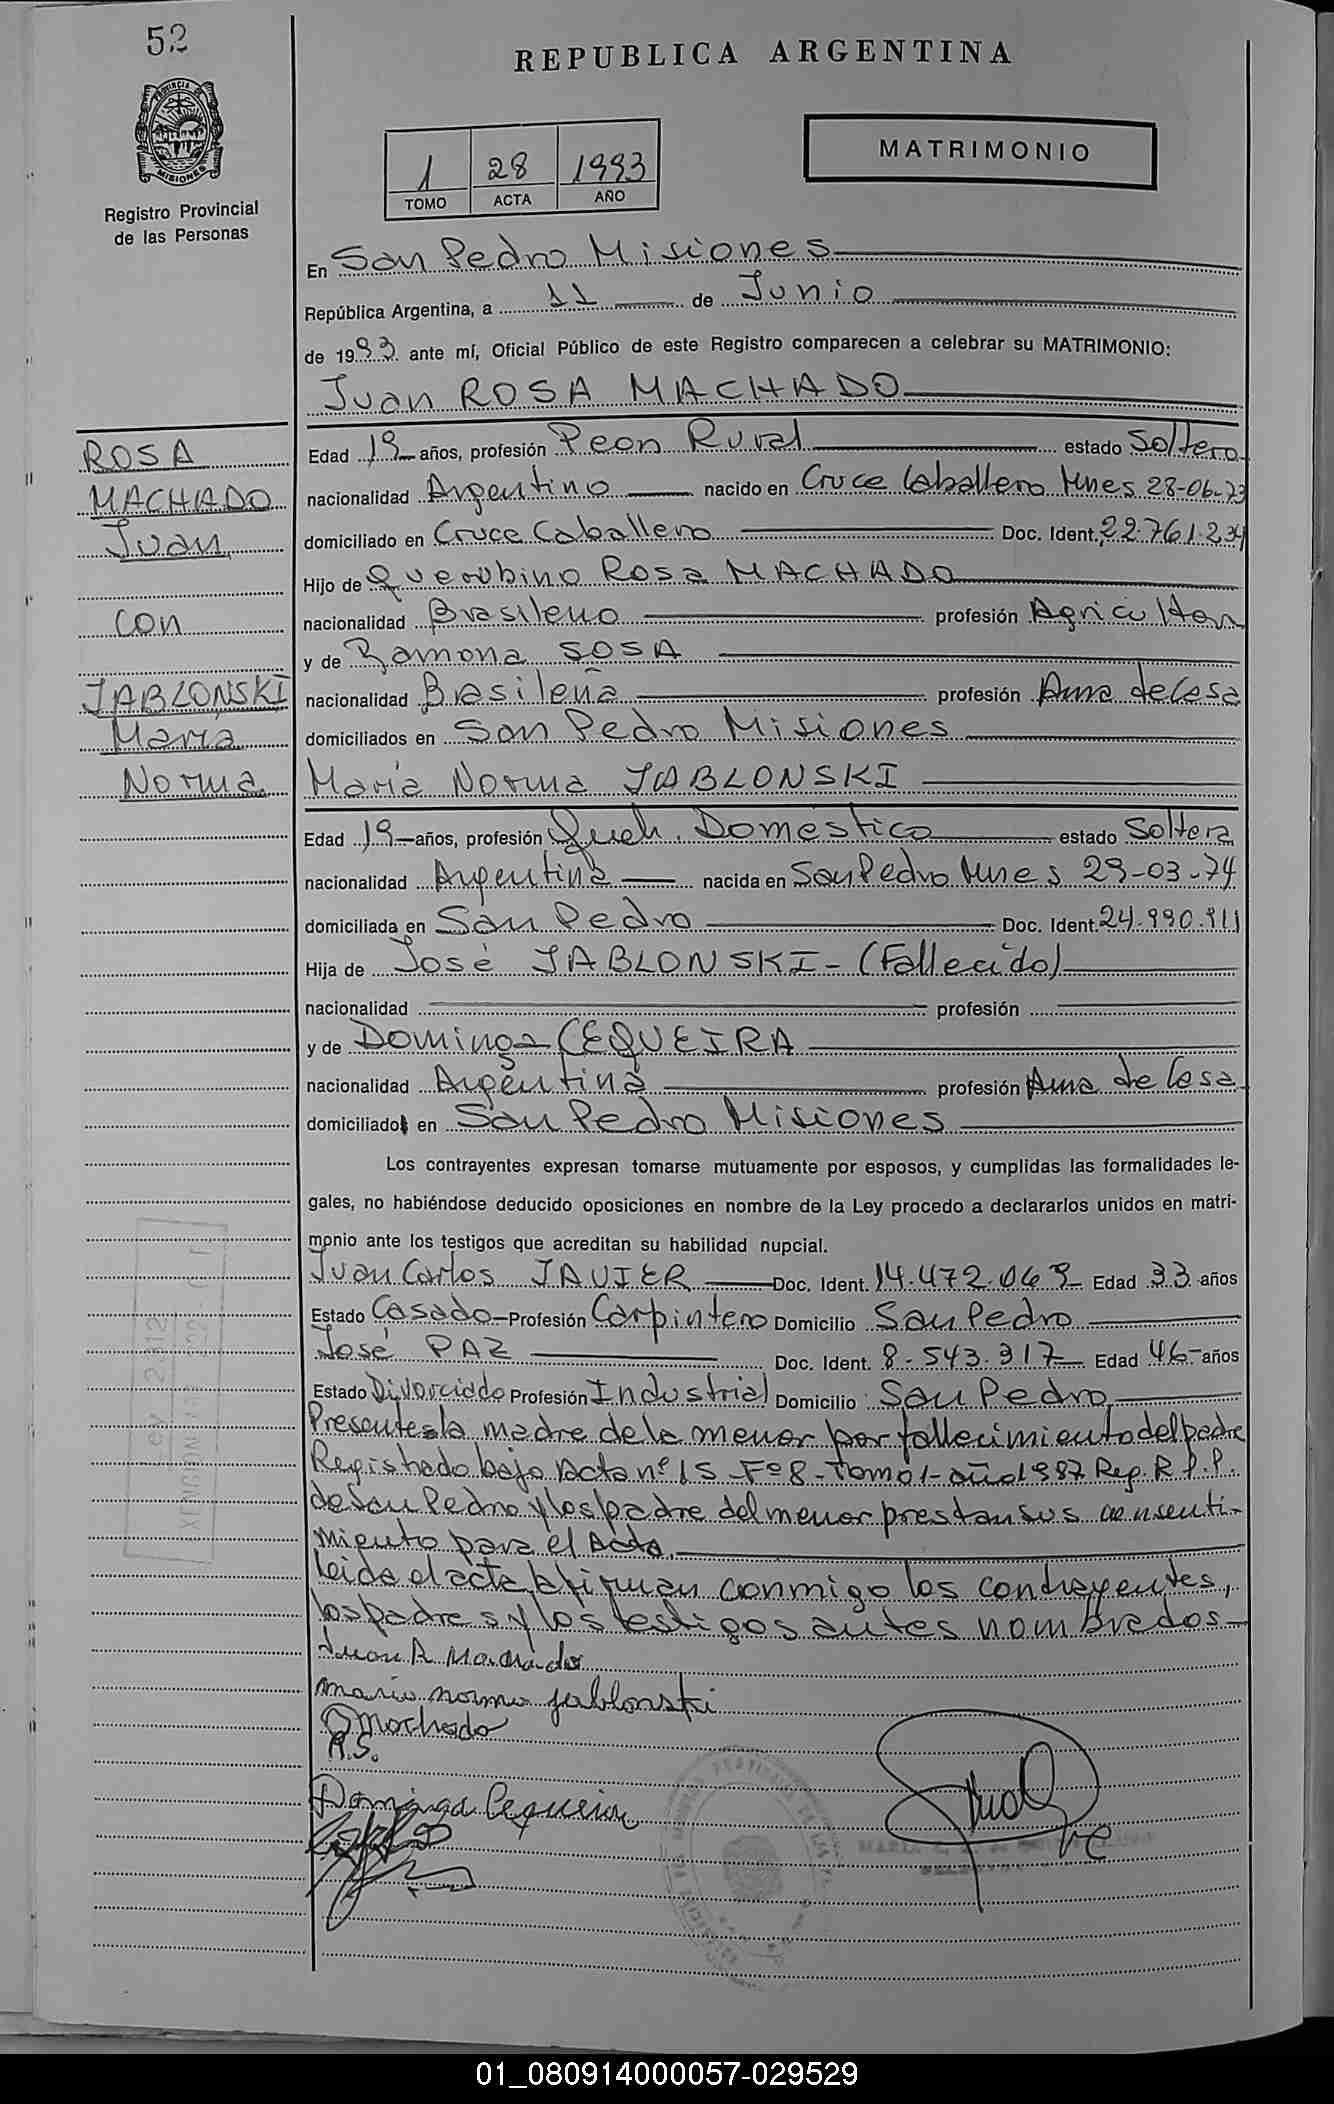 52
REPUBLICA ARGENTINA
PROVINCIA DE
MISIONES
Registro Provincial
de las Personas
1 28 1993
TOMO ACTA AÑO
MATRIMONIO
En San Pedro Misiones
República Argentina, a 11 de Junio
de 1993 ante mí, Oficial Público de este Registro comparecen a celebrar su MATRIMONIO:
Juan ROSA MACHADO
ROSA
MACHADO
Juan
con
JABLONSKI
Maria
Norma
Edad 19 años, profesión Peon Rural estado Soltero
nacionalidad Argentino nacido en Cruce Caballero Mnes 28-06-73
domiciliado en Cruce Caballero Doc. Ident. 22.761.234
Hijo de Querubino Rosa MACHADO
nacionalidad Brasileño profesión Agricultor
y de Ramona SOSA
nacionalidad Brasileña profesión Ama de Casa
domiciliados en San Pedro Misiones
María Norma JABLONSKI
Edad 19 años, profesión Queh. Domestico estado Soltera
nacionalidad Argentina nacida en San Pedro Mnes 29-03-74
domiciliada en San Pedro Doc. Ident. 24.990.911
Hija de José JABLONSKI - (Fallecido)
nacionalidad profesión
y de Dominga CEQUEIRA
nacionalidad Argentina profesión Ama de Casa
domiciliados en San Pedro Misiones
Los contrayentes expresan tomarse mutuamente por esposos, y cumplidas las formalidades le-
gales, no habiéndose deducido oposiciones en nombre de la Ley procedo a declararlos unidos en matri-
monio ante los testigos que acreditan su habilidad nupcial.
Juan Carlos JAVIER Doc. Ident. 14.472.069 Edad 33 años
Estado Casado Profesión Carpintero Domicilio San Pedro
José PAZ Doc. Ident. 8.543.317 Edad 46 años
Estado Divorciado Profesión Industrial Domicilio San Pedro
Presentes la madre de la menor por fallecimiento del padre
Registrado bajo Acta nº 15 - Fº 8 - Tomo 1 - año 1987 Reg. R.P.P.
de San Pedro y los padre del menor prestan sus consenti-
miento para el Acta.
Leida el acta la firman conmigo los contrayentes,
los padres y los testigos antes nombrados
Juan R Machado
Maria norma Jablonski
Q Machado
R.S.
Dominga Cequeira
01_080914000057-029529